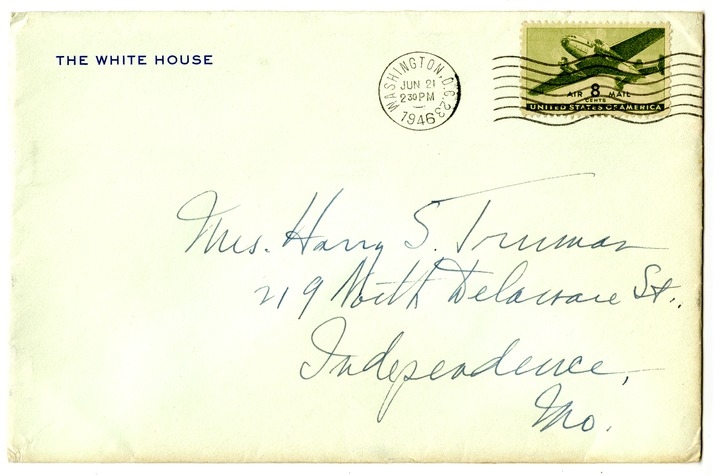 THE WHITE HOUSE
WASHINGTON, D.C. 23
JUN 21
2 30 PM
1946
AIR 8 MAIL
CENTS
UNITED STATES OF AMERICA
Mrs. Harry S. Truman
219 North Delaware St.,
Independence,
Mo.